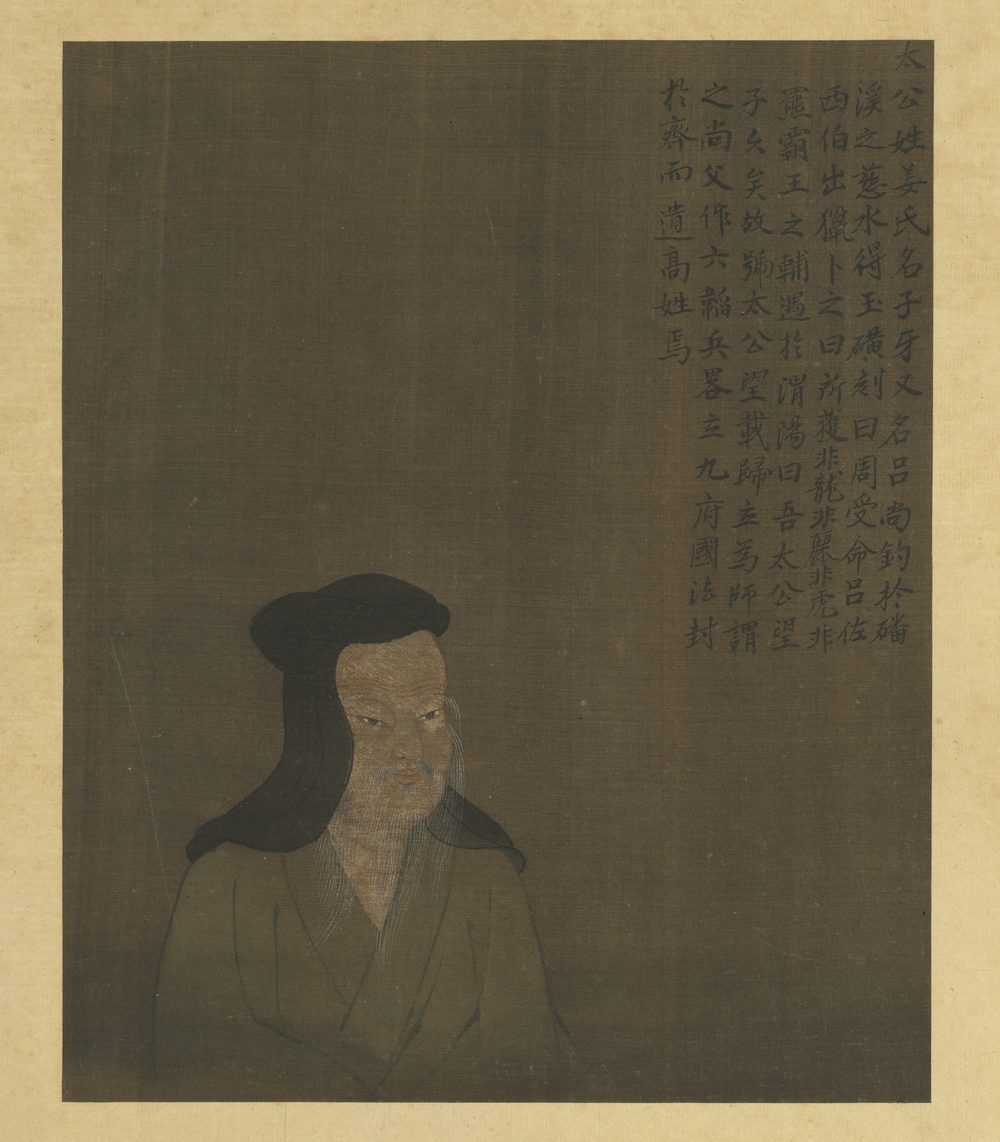 太公姓姜氏名子牙又名呂尚釣於磻
溪之慈水得玉磺刻曰周受命呂佐
西伯出獵卜之曰所獲非龍非彲非虎非
羆霸王之輔遇於渭陽曰吾太公望
子久矣故號太公望載歸立為師謂
之尚父作六韜兵畧立九府國法封
於齊而遺高姓焉